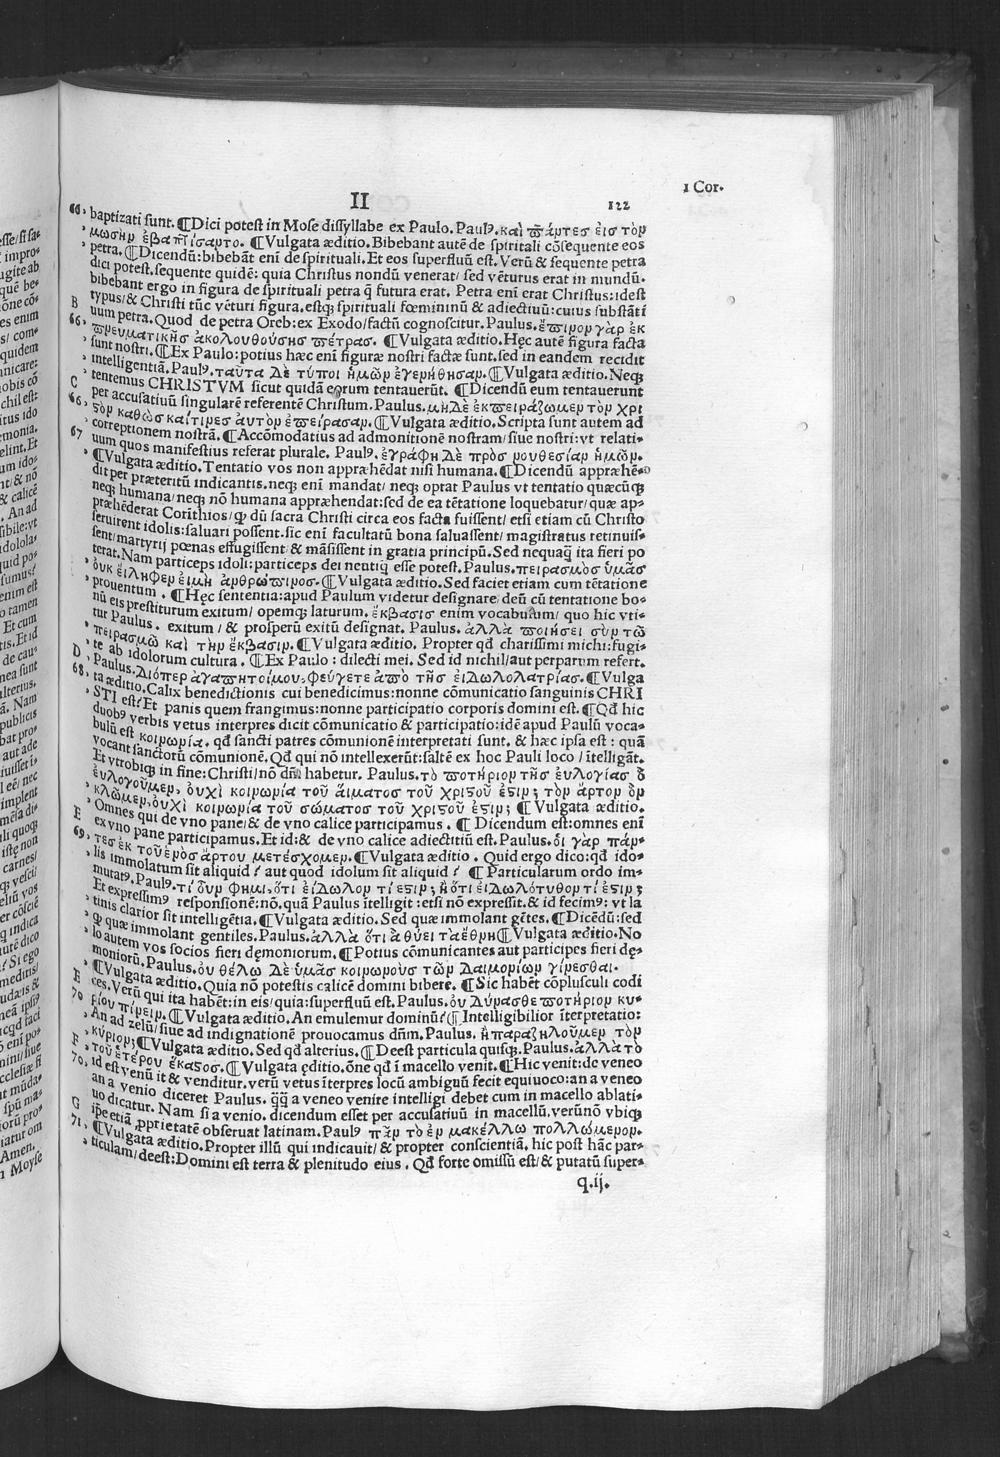 1 Cor.
II
122
66, baptizati sunt. ¶Dici potest in Mose dissyllabe ex Paulo. Paulꝰ. καὶ πάντες εἰσ τὸν
, μωσῆν ἐβαπτίσαντο. ¶Vulgata æditio. Bibebant autē de spiritali cōsequente eos
petra. ¶Dicendū: bibebāt enī de spirituali. Et eos superfluū est. Verū & sequente petra
dici potest. sequente quidē: quia Christus nondū venerat/ sed vēturus erat in mundū.
bibebant ergo in figura de spirituali petra q̄ futura erat. Petra enī erat Christus: idest
B typus/ & Christi tūc vēturi figura. estqꝫ spirituali fœmininū & adiectiuū: cuius substāti
66, uum petra. Quod de petra Oreb: ex Exodo/ factū cognoscitur. Paulus. ἔπινον γὰρ ἐκ
, πνευματικῆσ ἀκολουθούσησ πέτρασ. ¶Vulgata æditio. Hęc autē figura facta
, sunt nostri. ¶Ex Paulo: potius hæc enī figuræ nostri factæ sunt. sed in eandem recidit
intelligentiā. Paulꝰ. ταῦτα δὲ τύποι ἡμῶν ἐγενήθησαν. ¶Vulgata æditio. Neqꝫ
C , tentemus CHRISTVM sicut quidā eorum tentauerūt. ¶Dicendū eum tentauerunt
66, per accusatiuū singularē referentē Christum. Paulus. μηδὲ ἐκπειράζωμεν τὸν χρι
, στὸν καθὼσ καίτινεσ ἀυτὸν ἐπείρασαν. ¶Vulgata æditio. Scripta sunt autem ad
67 , correptionem nostrā. ¶Accōmodatius ad admonitionē nostram/ siue nostri: vt relati-
uum quos manifestius referat plurale. Paulꝰ. ἐγράφη δὲ πρὸσ νουθεσίαν ἡμῶν.
, ¶Vulgata æditio. Tentatio vos non appræhēdat nisi humana. ¶Dicendū appræhē-
dit per præteritū indicantis. neqꝫ enī mandat/ neqꝫ optat Paulus vt tentatio quæcūqꝫ
neqꝫ humana/ neqꝫ nō humana appræhendat: sed de ea tētatione loquebatur/ quæ ap-
præhēderat Corīthios/ ꝙ dū sacra Christi circa eos facta fuissent/ etsi etiam cū Christo
seruirent idolis: saluari possent. sic enī facultatū bona saluassent/ magistratus retinuis-
sent/ martyrij pœnas effugissent & māsissent in gratia principū. Sed nequaꝗ̄ ita fieri po
terat. Nam particeps idoli: particeps dei neutiꝗ̄ esse potest. Paulus. πειρασμὸσ ὑμᾶσ
, ὀυκ ἔιληφεν ἐιμὴ ἀνθρώπινοσ. ¶Vulgata æditio. Sed faciet etiam cum tētatione
, prouentum. ¶Hęc sententia: apud Paulum videtur designare deū cū tentatione bo-
nū eis prestiturum exitum/ opemqꝫ laturum. ἔκβασισ enim vocabulum/ quo hic vti-
tur Paulus. exitum / & prosperū exitū designat. Paulus. ἀλλὰ ποιήσει σὺν τῶ
, πειρασμῶ καὶ τὴν ἔκβασιν. ¶Vulgata æditio. Propter qd̄ charissimi michi: fugi-
D , te ab idolorum cultura. ¶Ex Paulo : dilecti mei. Sed id nichil/ aut perparum refert.
68, Paulus. Διόπερ ἀγαπητοίμου, φεύγετε ἀπὸ τῆσ ἐιδωλολατρίασ. ¶Vulga
, ta æditio. Calix benedictionis cui benedicimus: nonne cōmunicatio sanguinis CHRI
, STI est? Et panis quem frangimus: nonne participatio corporis domini est. ¶Qd̄ hic
duobꝰ verbis vetus interpres dicit cōmunicatio & participatio: idē apud Paulū voca-
bulū est κοινωνία. qd̄ sancti patres cōmunionē interpretati sunt. & hæc ipsa est : quā
vocant sanctorū cōmunionē. Qd̄ qui nō intellexerūt: saltē ex hoc Pauli loco / ītelligāt.
Et vtrobiqꝫ in fine: Christi/ nō dn̄i habetur. Paulus. τὸ ποτήριον τῆσ ἐυλογίασ ὃ
, ἐυλογοῦμεν, ὀυχὶ κοινωνία τοῦ ἅιματοσ τοῦ χριστοῦ ἐστιν; τὸν ἄρτον ὃν
, κλῶμεν, ὀυχὶ κοινωνία τοῦ σώματοσ τοῦ χριστοῦ ἐστιν; ¶Vulgata æditio.
E , Omnes qui de vno pane/ & de vno calice participamus. ¶Dicendum est: omnes enī
ex vno pane participamus. Et id: & de vno calice adiectitiū est. Paulus. ὁι γὰρ πάν-
69, τεσ ἐκ τοῦ ἑνὸσ ἄρτου μετέσχομεν. ¶Vulgata æditio. Quid ergo dico: qd̄ ido-
, lis immolatum sit aliquid? aut quod idolum sit aliquid? ¶Particularum ordo im-
mutatꝰ. Paulꝰ. τί ὀυν φημι, ὅτι ἐίδωλον τί ἐστιν; ἢ ὅτι ἐιδωλόθυτον τί ἐστιν;
Et expressimꝰ responsionē: nō. quā Paulus ītelligit : etsi nō expressit. & id fecimꝰ: vt la
tinis clarior sit intelligētia. ¶Vulgata æditio. Sed quæ immolant gētes. ¶Dicēdū: sed
, ꝙ quæ immolant gentiles. Paulus. ἀλλὰ ὅτι ἃ θύει τὰ ἔθνη ¶Vulgata æditio. No
, lo autem vos socios fieri dęmoniorum. ¶Potius cōmunicantes aut participes fieri dę-
moniorū. Paulus. ὀυ θέλω δὲ ὑμᾶσ κοινωνοὺσ τῶν δαιμονίων γίνεσθαι.
E , ¶Vulgata æditio. Quia nō potestis calicē domini bibere. ¶Sic habēt cōplusculi codi
70 ces. Verū qui ita habēt: in eis/ quia: superfluū est. Paulus. ὀυ δύνασθε ποτήριον κυ-
, ρίου πίνειν. ¶Vulgata æditio. An emulemur dominū? ¶Intelligibilior īterpretatio:
, An ad zelū/ siue ad indignationē prouocamus dn̄m. Paulus. ἢ παραζηλοῦμεν τὸν
F , κύριον; ¶Vulgata æditio. Sed qd̄ alterius. ¶Deest particula quisqꝫ. Paulus. ἀλλὰ τὸ
70, τοῦ ἑτέρου ἕκαστοσ. ¶Vulgata ęditio. ōne qd̄ ī macello venit. ¶Hic venit: de veneo
id est venū it & venditur. verū vetus īterpres locū ambiguū fecit equiuoco: an a veneo
G an a venio diceret Paulus. q̄q̄ a veneo venire intelligi debet cum in macello ablati-
71, uo dicatur. Nam si a venio. dicendum esset per accusatiuū in macellū. verūnō vbiqꝫ
ipse etiā ꝓprietatē obseruat latinam. Paulꝰ πᾶν τὸ ἐν μακέλλω πωλλώμενον.
, ¶Vulgata æditio. Propter illū qui indicauit/ & propter conscientiā. hic post hāc par-
, ticulam/ deest: Domini est terra & plenitudo eius. Qd̄ forte omissū est/ & putatū super-
q.ij.